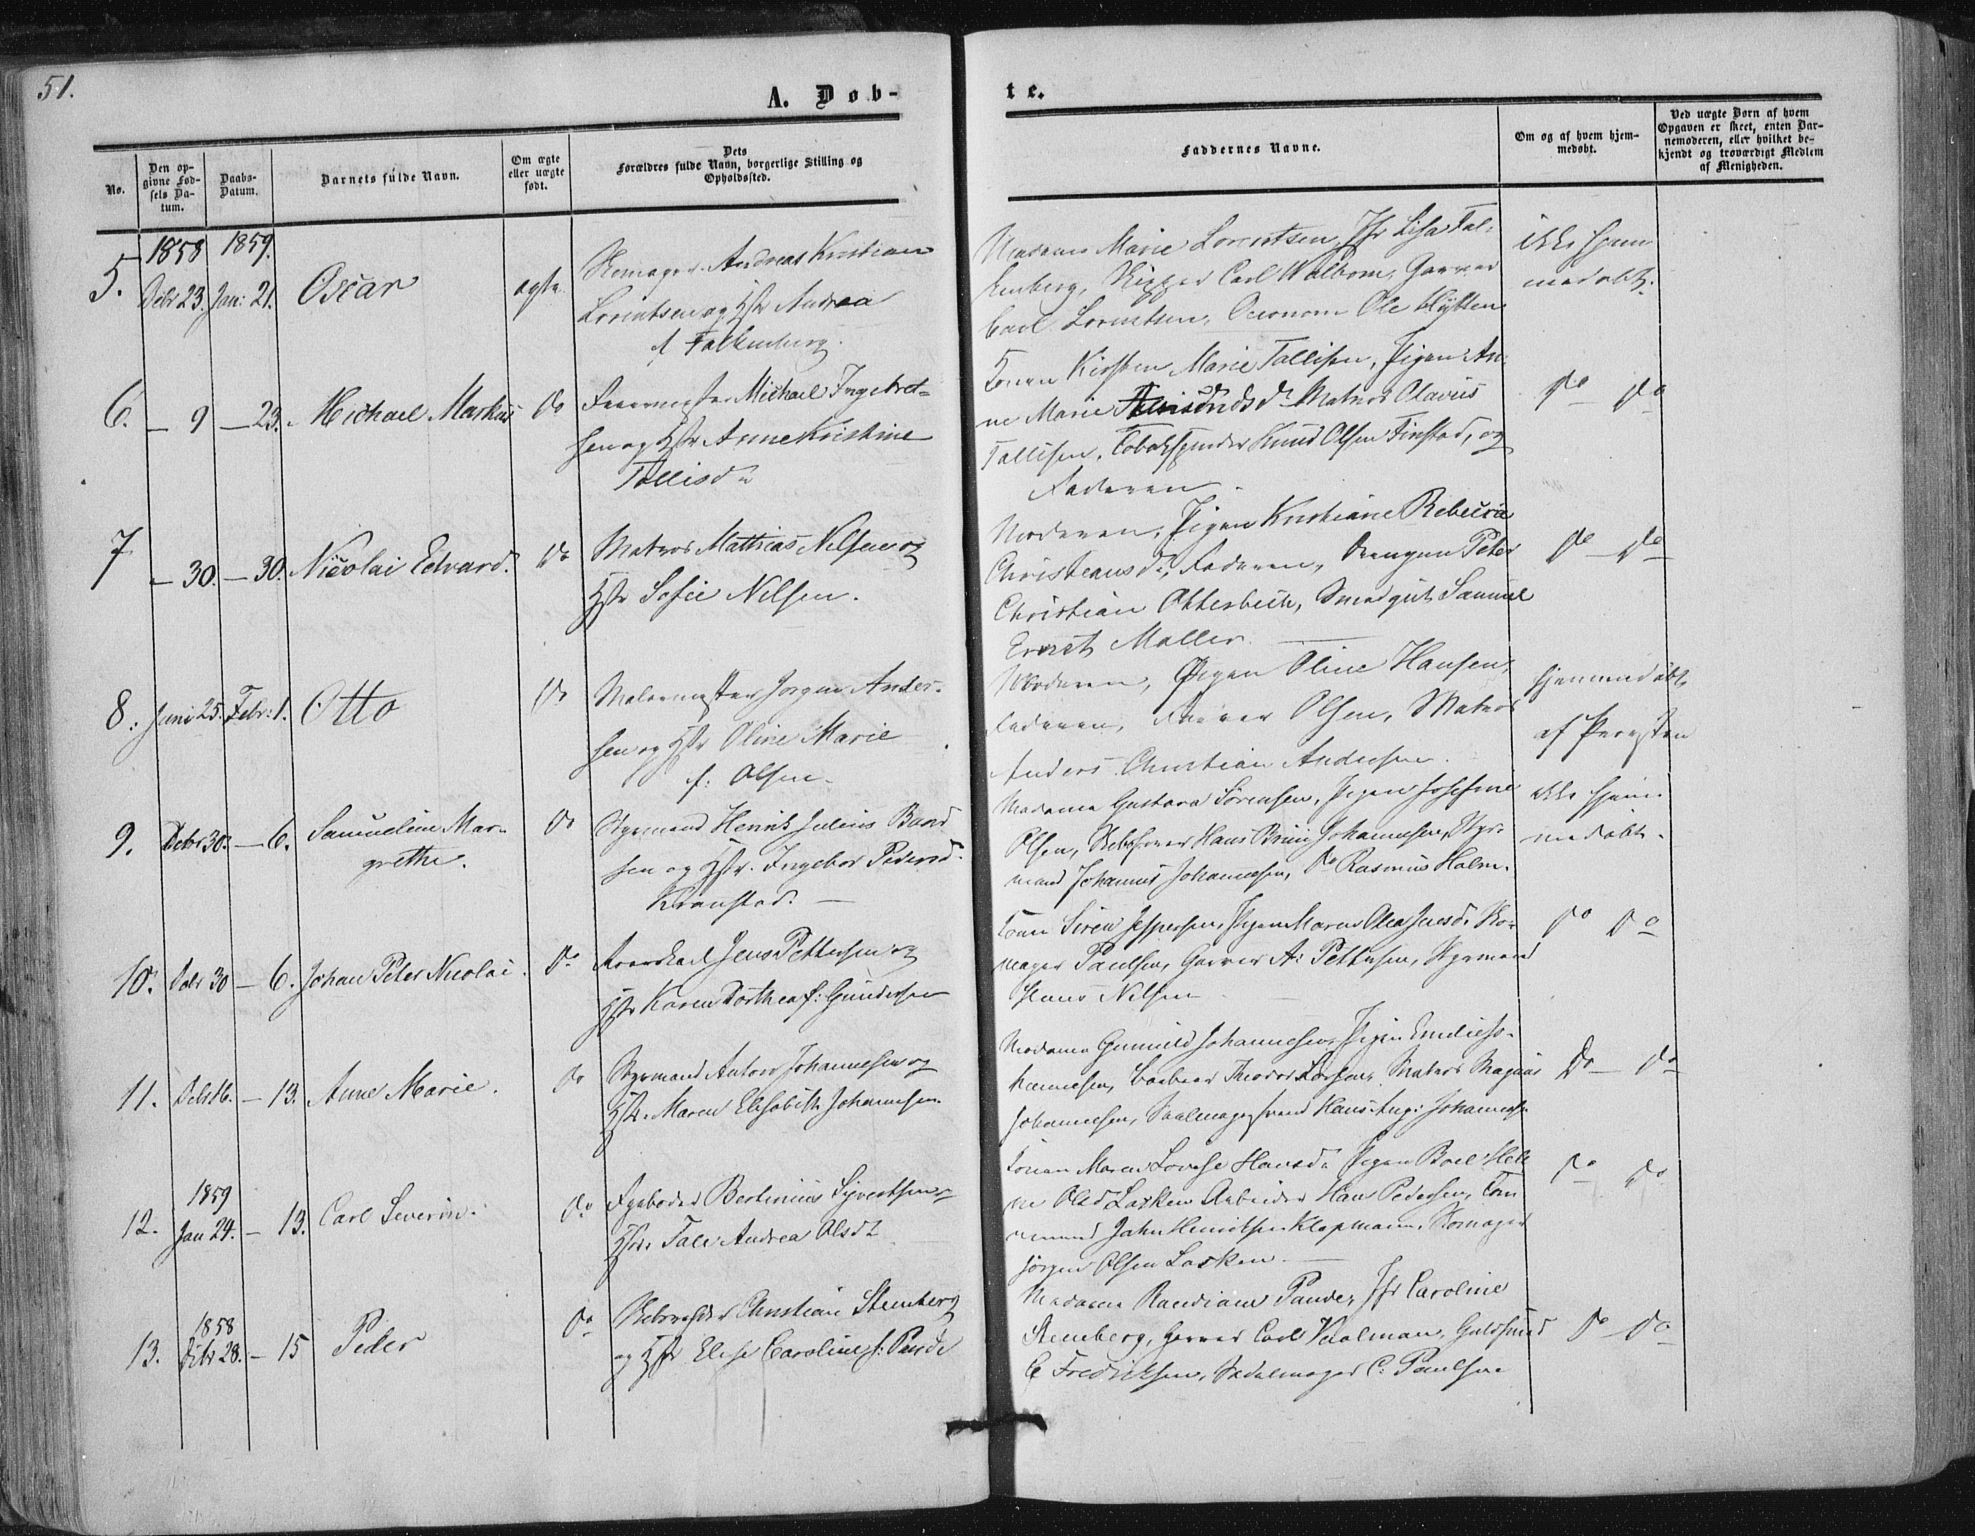 51.
A. Døb-
te.
No.
Den op-
givne Fød-
sels Da-
tum.
Daabs-
Datum.
Barnets fulde Navn.
Om ægte
eller uægte
født.
Dets
Forældres fulde Navn, borgerlige Stilling og
Opholdssted.
Faddernes Navne.
Om og af hvem hjem-
medøbt.
Ved uægte Børn af hvem
Opgaven er skeet, enten Bar-
nemoderen, eller hvilket be-
kjendt og troværdigt Medlem
af Menigheden.
1858 1859.
5. Debr 23. Jan: 21. Oscar ægte
Andreas Kristian
Lorentsen og Hstr Andrea
f. Falkenberg.
Madame Marie Lorentsen, Jfr Lisa Fal-
kenberg, Skipper Carl Walbom, Garver
Carl Lorentsen, Oeconom Ole Hytten
ikke hjem
medøbt.
6. — 9 — 23. Michael Markus Do
Michael Ingebret-
sen og Hstr Anne Kristine
Tollisd.
Konen Kirsten Marie Tollisen, Pigen An-
ne Marie Matros Olavus
Tollisen, Tobaksspinder Knud Olsen Finstad, og
Faderen.
Do — Do
7 — 30. — 30. Nicolai Edvard. Do
Matros Mathias Nilsen og
Hstr Sofie Nilsen.
Moderen, Pigen Kristiane Rebecca
Christensd., Faderen, Peter
Christian Otterbech, Smedgut Samuel
Ernst Møller.
Do — Do
8. Juni 25. Febr: 1. Otto Do
Malermester Jørgen Ander-
sen og Hstr Oline Marie
f. Olsen.
Moderen, Pigen Oline Hansen,
Faderen, Olsen, Matros
Anders Christian Andersen.
hjemmedøbt
af Præsten
9. Debr 30. — 6. Samueline Mar-
grethe. Do
Styrmand Henrik Julius
sen og Hstr. Ingebor Pedersd.
Kranstad. —
Madame Gustava Sörensen, Pigen Josefine
Olsen, Hans Johannesen, Styr-
mand Johannes Johannesen, Do Rasmus Holm.
ikke hjem-
medøbt.
10. Debr 30 — 6. Johan Peter Nicolai. Do
Jens Pettersen og
Hstr Karen Dorthea f: Gundersen
Konen Siren Jespersen, Pigen Maren Olea Jensd.
mager Paulsen, Garver A: Pettersen, Styrmand
Hans Nilsen
Do Do
11. Debr 16. — 13. Anne Marie. Do
Styrmand Anton Johannesen og
Hstr. Maren Elisabeth Johannesen.
Madame Gunnild Johannesen, Pigen Emilie Jo-
hannesen, Theodor Larsen, Matros Magnus
Johannesen, Hans Aug: Johannesen
Do — Do
1859
12. Jan 24. — 13. Carl Severin. Do
Bertinius Syvertsen
Hstr. Tale Andrea Olsdt
Konen Maren Lovise Hansd. Pigen Boel Hele
ne Olsd Lasken Arbeider Hans Pedersen, Tøm
mermand John Klapmann,
Jørgen Olsen Lasken —
Do Do
1858
13. Debr 28. — 15 Peder Do
Christian Stenberg
og Hstr Elise Caroline f: Pande
Madame Pande, Jfr Caroline
Stenberg, Garver Carl Guldsmed
C Fredriksen, Sadelmager C: Paulsen
Do — Do